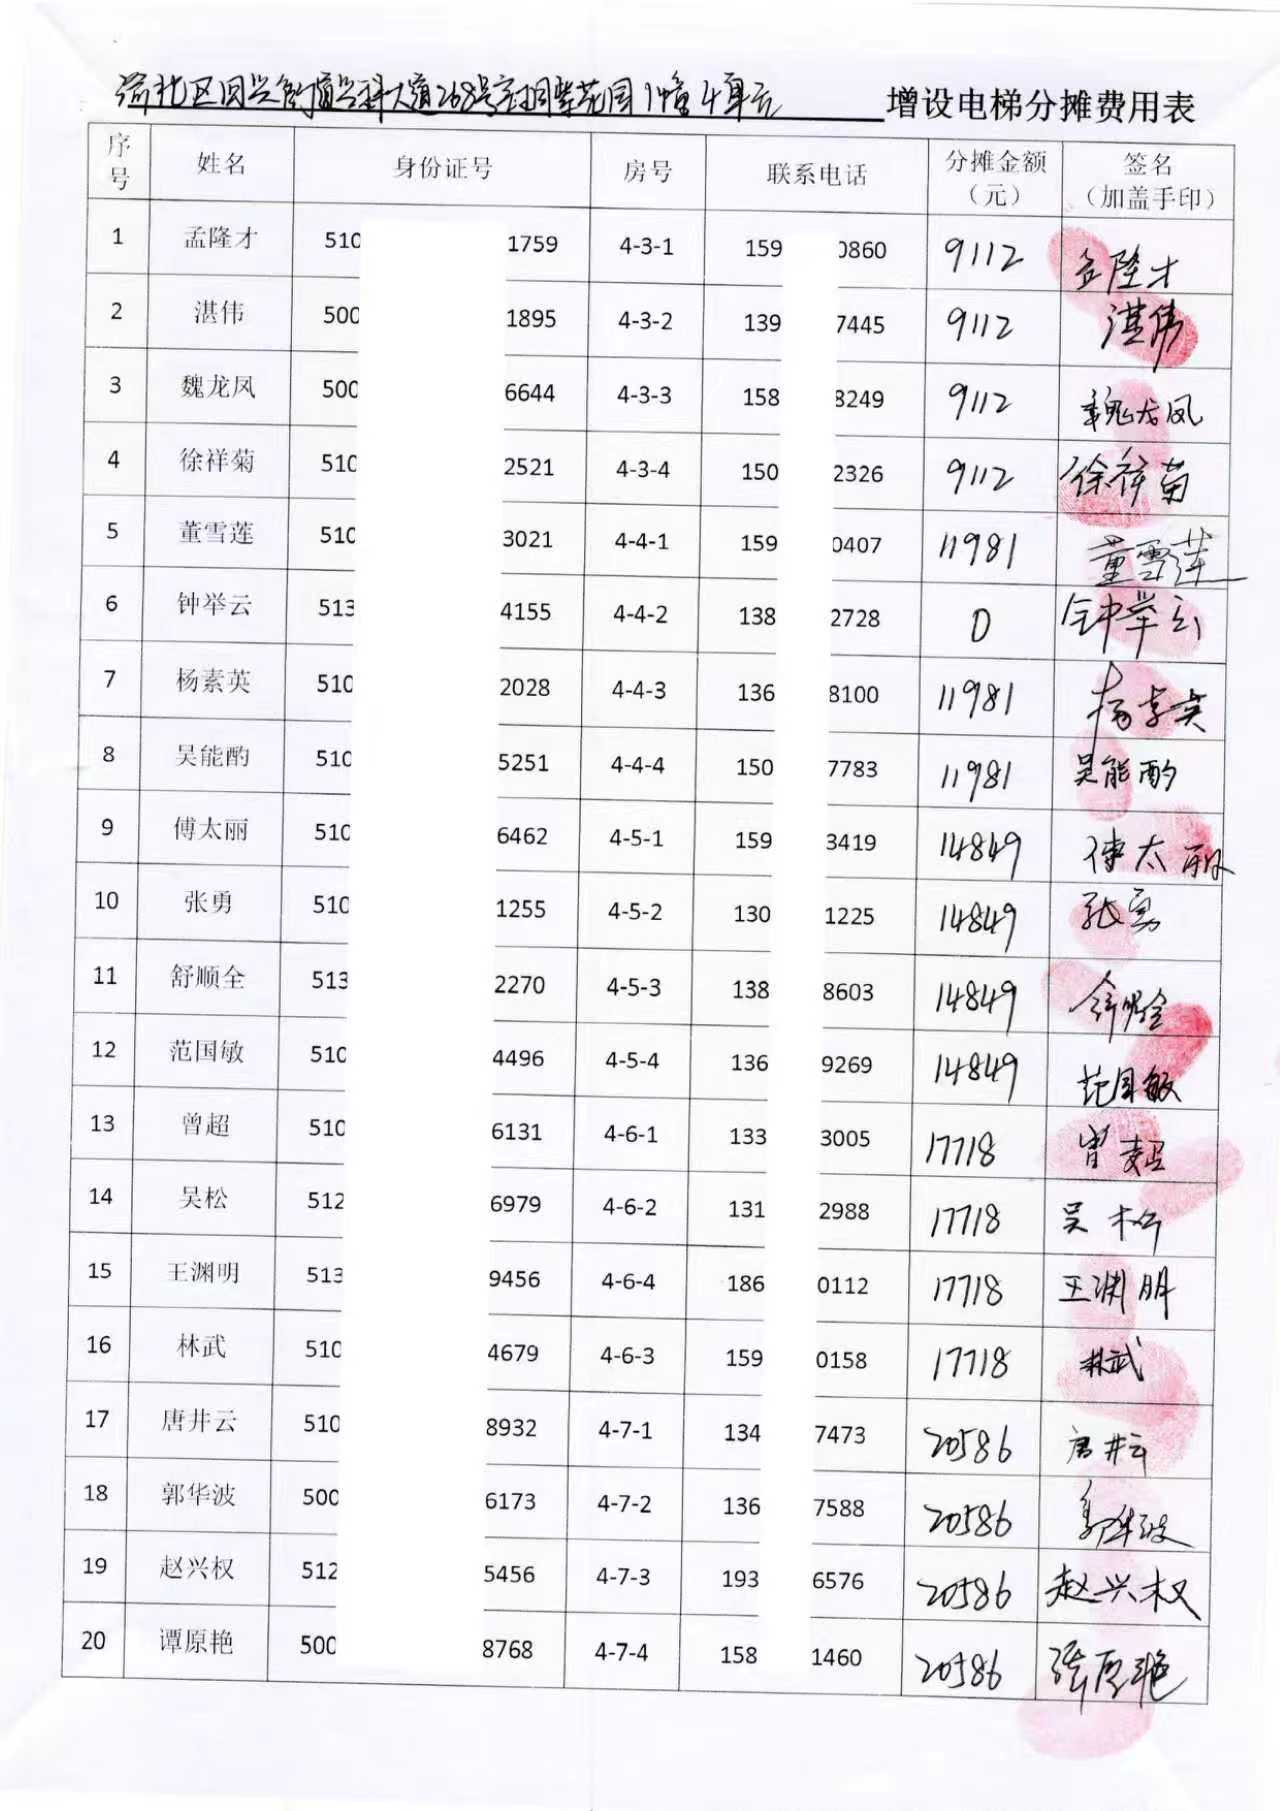 渝北区回兴街道兴科大道268号宝桐紫花园1幢4单元 增设电梯分摊费用表
序号 姓名 身份证号 房号 联系电话 分摊金额（元） 签名（加盖手印）
1 孟隆才 510 1759 4-3-1 159 0860 9112 孟隆才
2 湛伟 500 1895 4-3-2 139 7445 9112 湛伟
3 魏龙凤 500 6644 4-3-3 158 8249 9112 魏龙凤
4 徐祥菊 510 2521 4-3-4 150 2326 9112 徐祥菊
5 董雪莲 510 3021 4-4-1 159 0407 11981 董雪莲
6 钟举云 513 4155 4-4-2 138 2728 0 钟举云
7 杨素英 510 2028 4-4-3 136 8100 11981 杨素英
8 吴能酌 510 5251 4-4-4 150 7783 11981 吴能酌
9 傅太丽 510 6462 4-5-1 159 3419 14849 傅太丽
10 张勇 510 1255 4-5-2 130 1225 14849 张勇
11 舒顺全 513 2270 4-5-3 138 8603 14849 舒顺全
12 范国敏 510 4496 4-5-4 136 9269 14849 范国敏
13 曾超 510 6131 4-6-1 133 3005 17718 曾超
14 吴松 512 6979 4-6-2 131 2988 17718 吴松
15 王渊明 513 9456 4-6-4 186 0112 17718 王渊明
16 林武 510 4679 4-6-3 159 0158 17718 林武
17 唐井云 510 8932 4-7-1 134 7473 20586 唐井云
18 郭华波 500 6173 4-7-2 136 7588 20586 郭华波
19 赵兴权 512 5456 4-7-3 193 6576 20586 赵兴权
20 谭原艳 500 8768 4-7-4 158 1460 20586 谭原艳